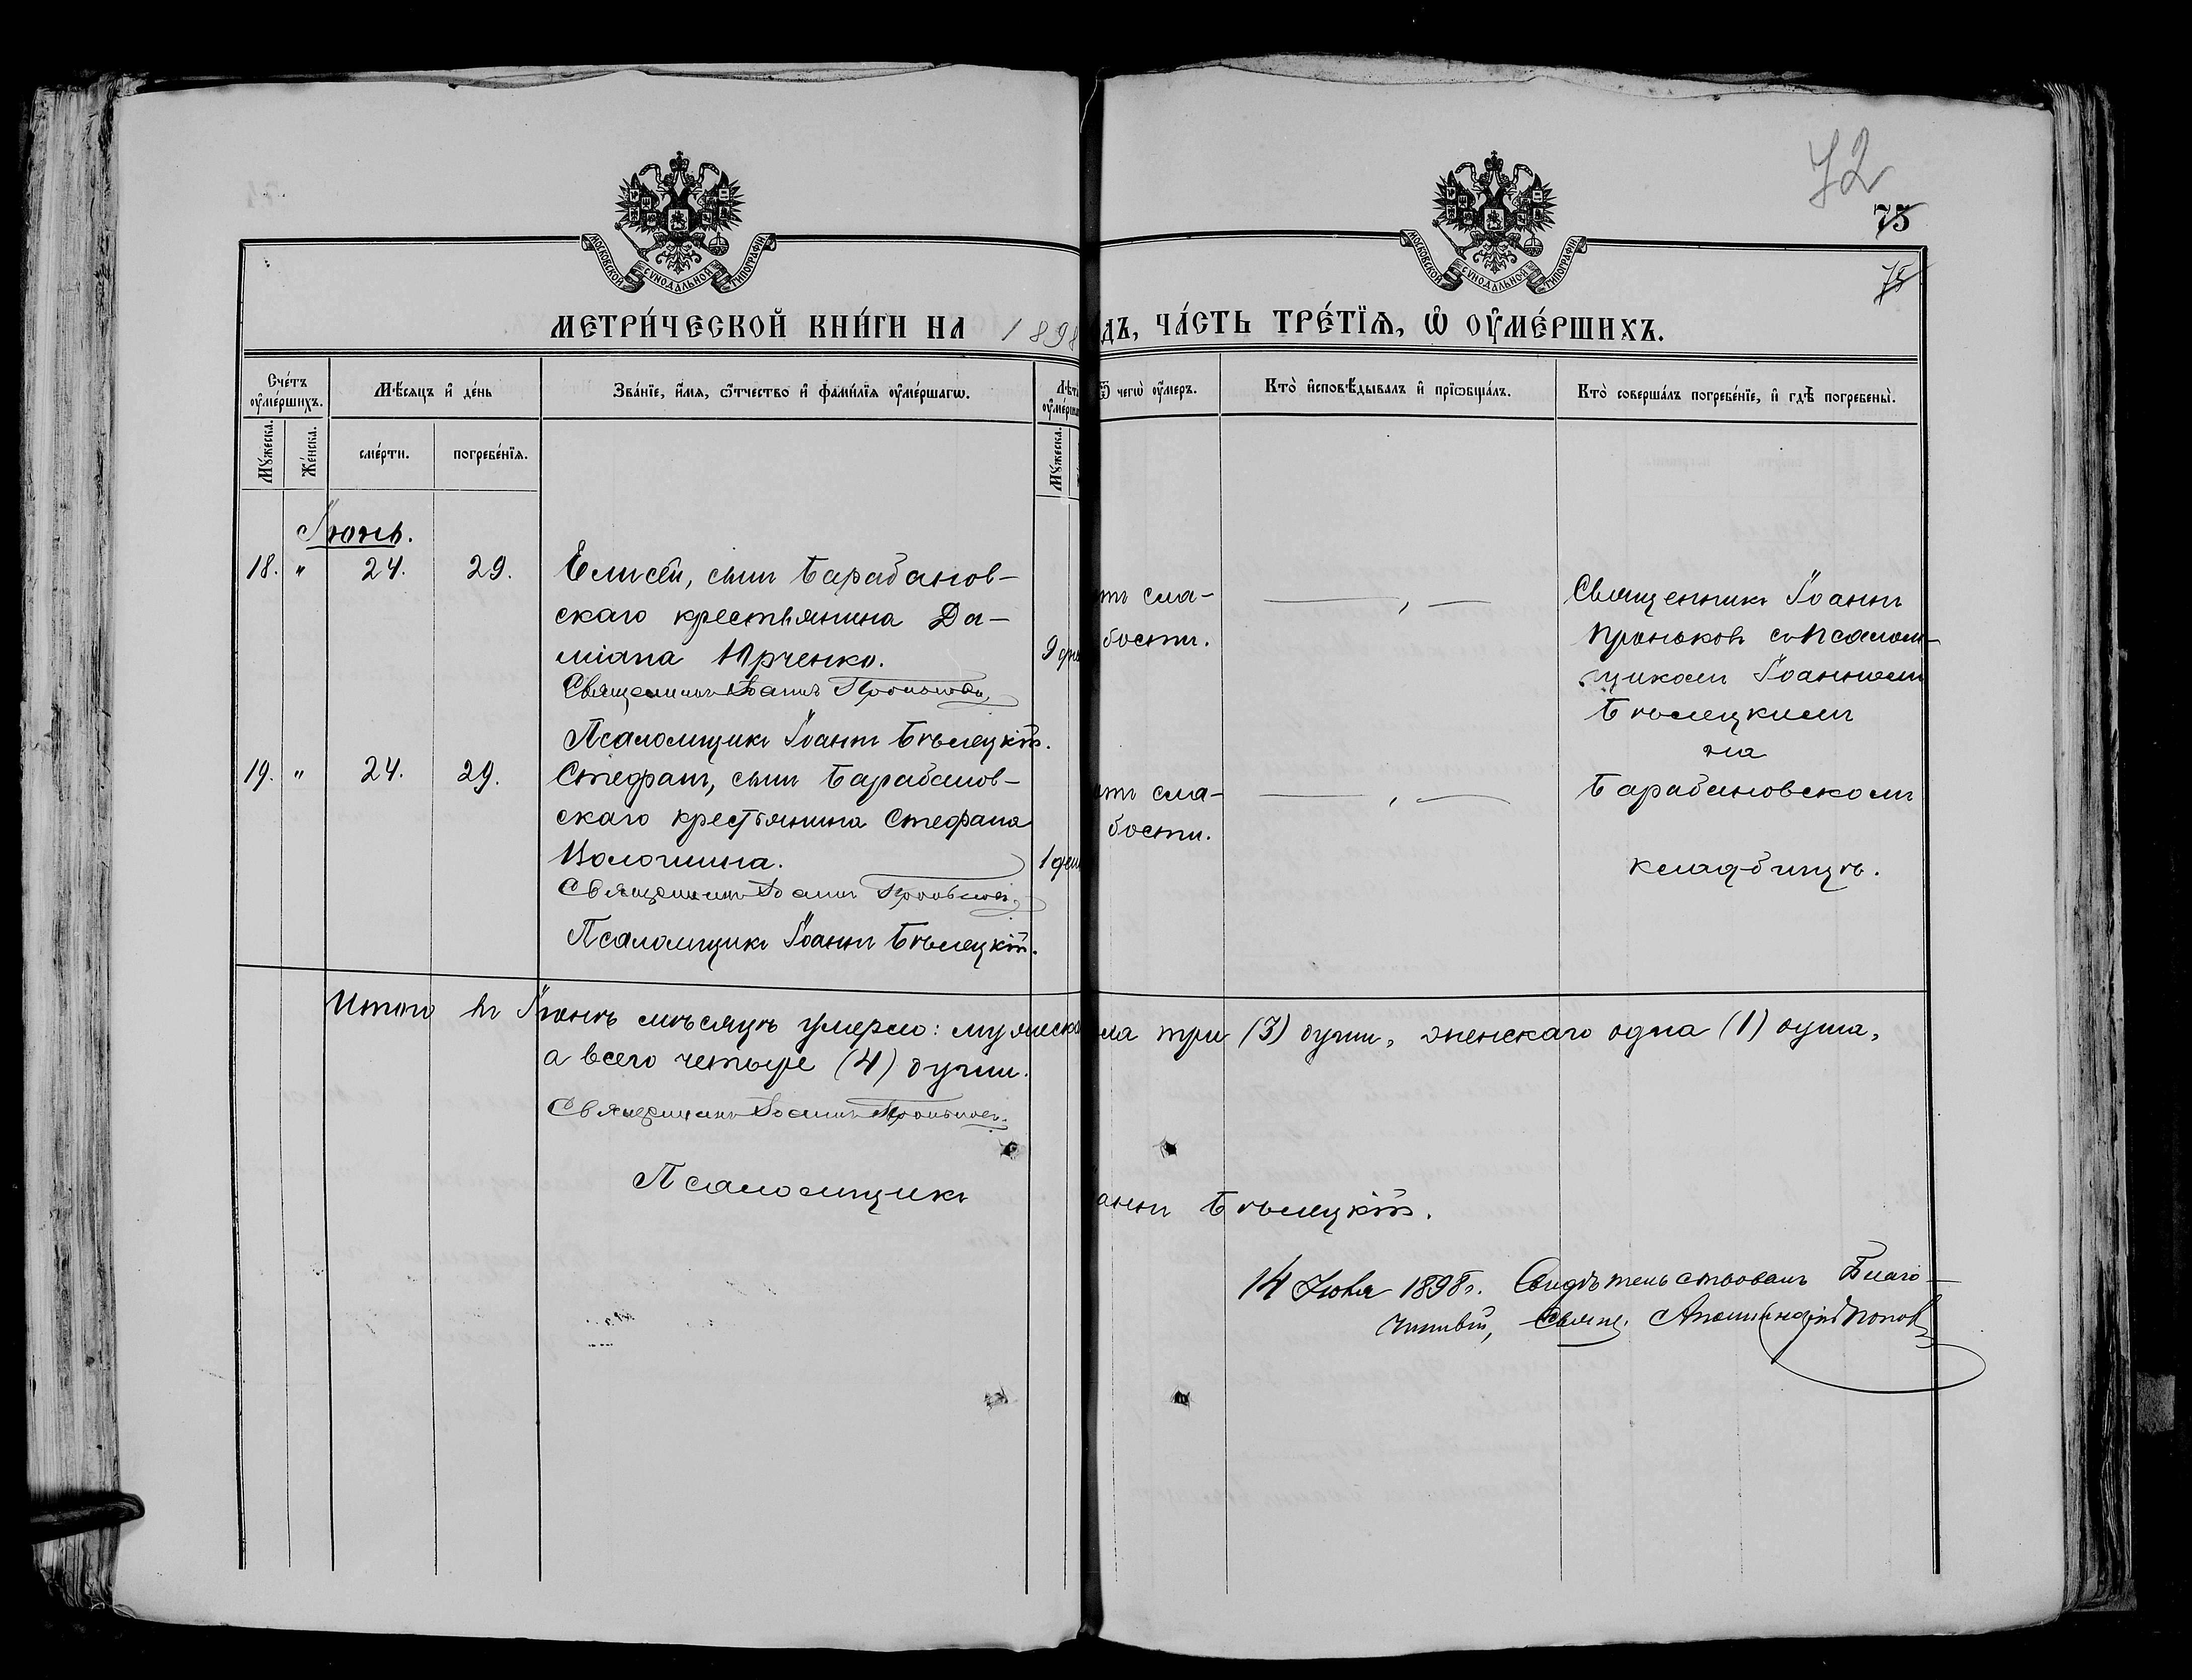 72
75
75
МОСКОВСКОЙ СѴНОДАЛЬНОЙ ТИПОГРАФІИ
МОСКОВСКОЙ СѴНОДАЛЬНОЙ ТИПОГРАФІИ
МЕТРИ́ЧЕСКОЙ КНИ́ГИ НА 1898
дъ, ЧА́СТЬ ТРЕ́ТЇѦ, Ѡ҆ ОУ҆МЕ́РШИХЪ.
Сче́тъ оу҆ме́ршихъ.
Мѣ́сяцъ и҆ де́нь
Зва́нїе, и҆́мя, ѻ҆́тчество и҆ фами́лїя оу҆ме́ршагѡ.
Лѣт
оу҆ме́рш
Ѿ чегѡ̀ оу҆́меръ.
Кто̀ и҆сповѣ́дывалъ и҆ прїѡбща́лъ.
Кто̀ соверша́лъ погребе́нїе, и҆ гдѣ̀ погребены̀.
Му́жеска.
Же́нска.
сме́рти.
погребе́нїя.
Му́жеска.
Іюнь.
18. " 24. 29. Елисей, сынъ Барабанов-
скаго крестьянина Да-
міана Юрченко. 9 дне
Священникъ Іоаннъ Проньковъ
Псаломщикъ Іоаннъ Бѣлецкій.
отъ сла-
бости.
Священникъ Іоаннъ
Проньковъ съ псалом-
щикомъ Іоанномъ
Бѣлецкимъ
на
Барабановскомъ
кладбищѣ.
19. " 24. 29. Стефанъ, сынъ Барабанов-
скаго крестьянина Стефана
Волошина. 1 ден
Священникъ Іоаннъ Проньковъ
Псаломщикъ Іоаннъ Бѣлецкій.
отъ сла-
бости.
Итого въ Іюнѣ мѣсяцѣ умерло: мужеска
ла три (3) души, женскаго одна (1) душа,
а всего четыре (4) души.
Священникъ Іоаннъ Проньковъ
Псаломщикъ
аннъ Бѣлецкій.
14 Іюля 1898 г. Свидѣтельствовалъ Благо-
чинный, Свящ. Попов